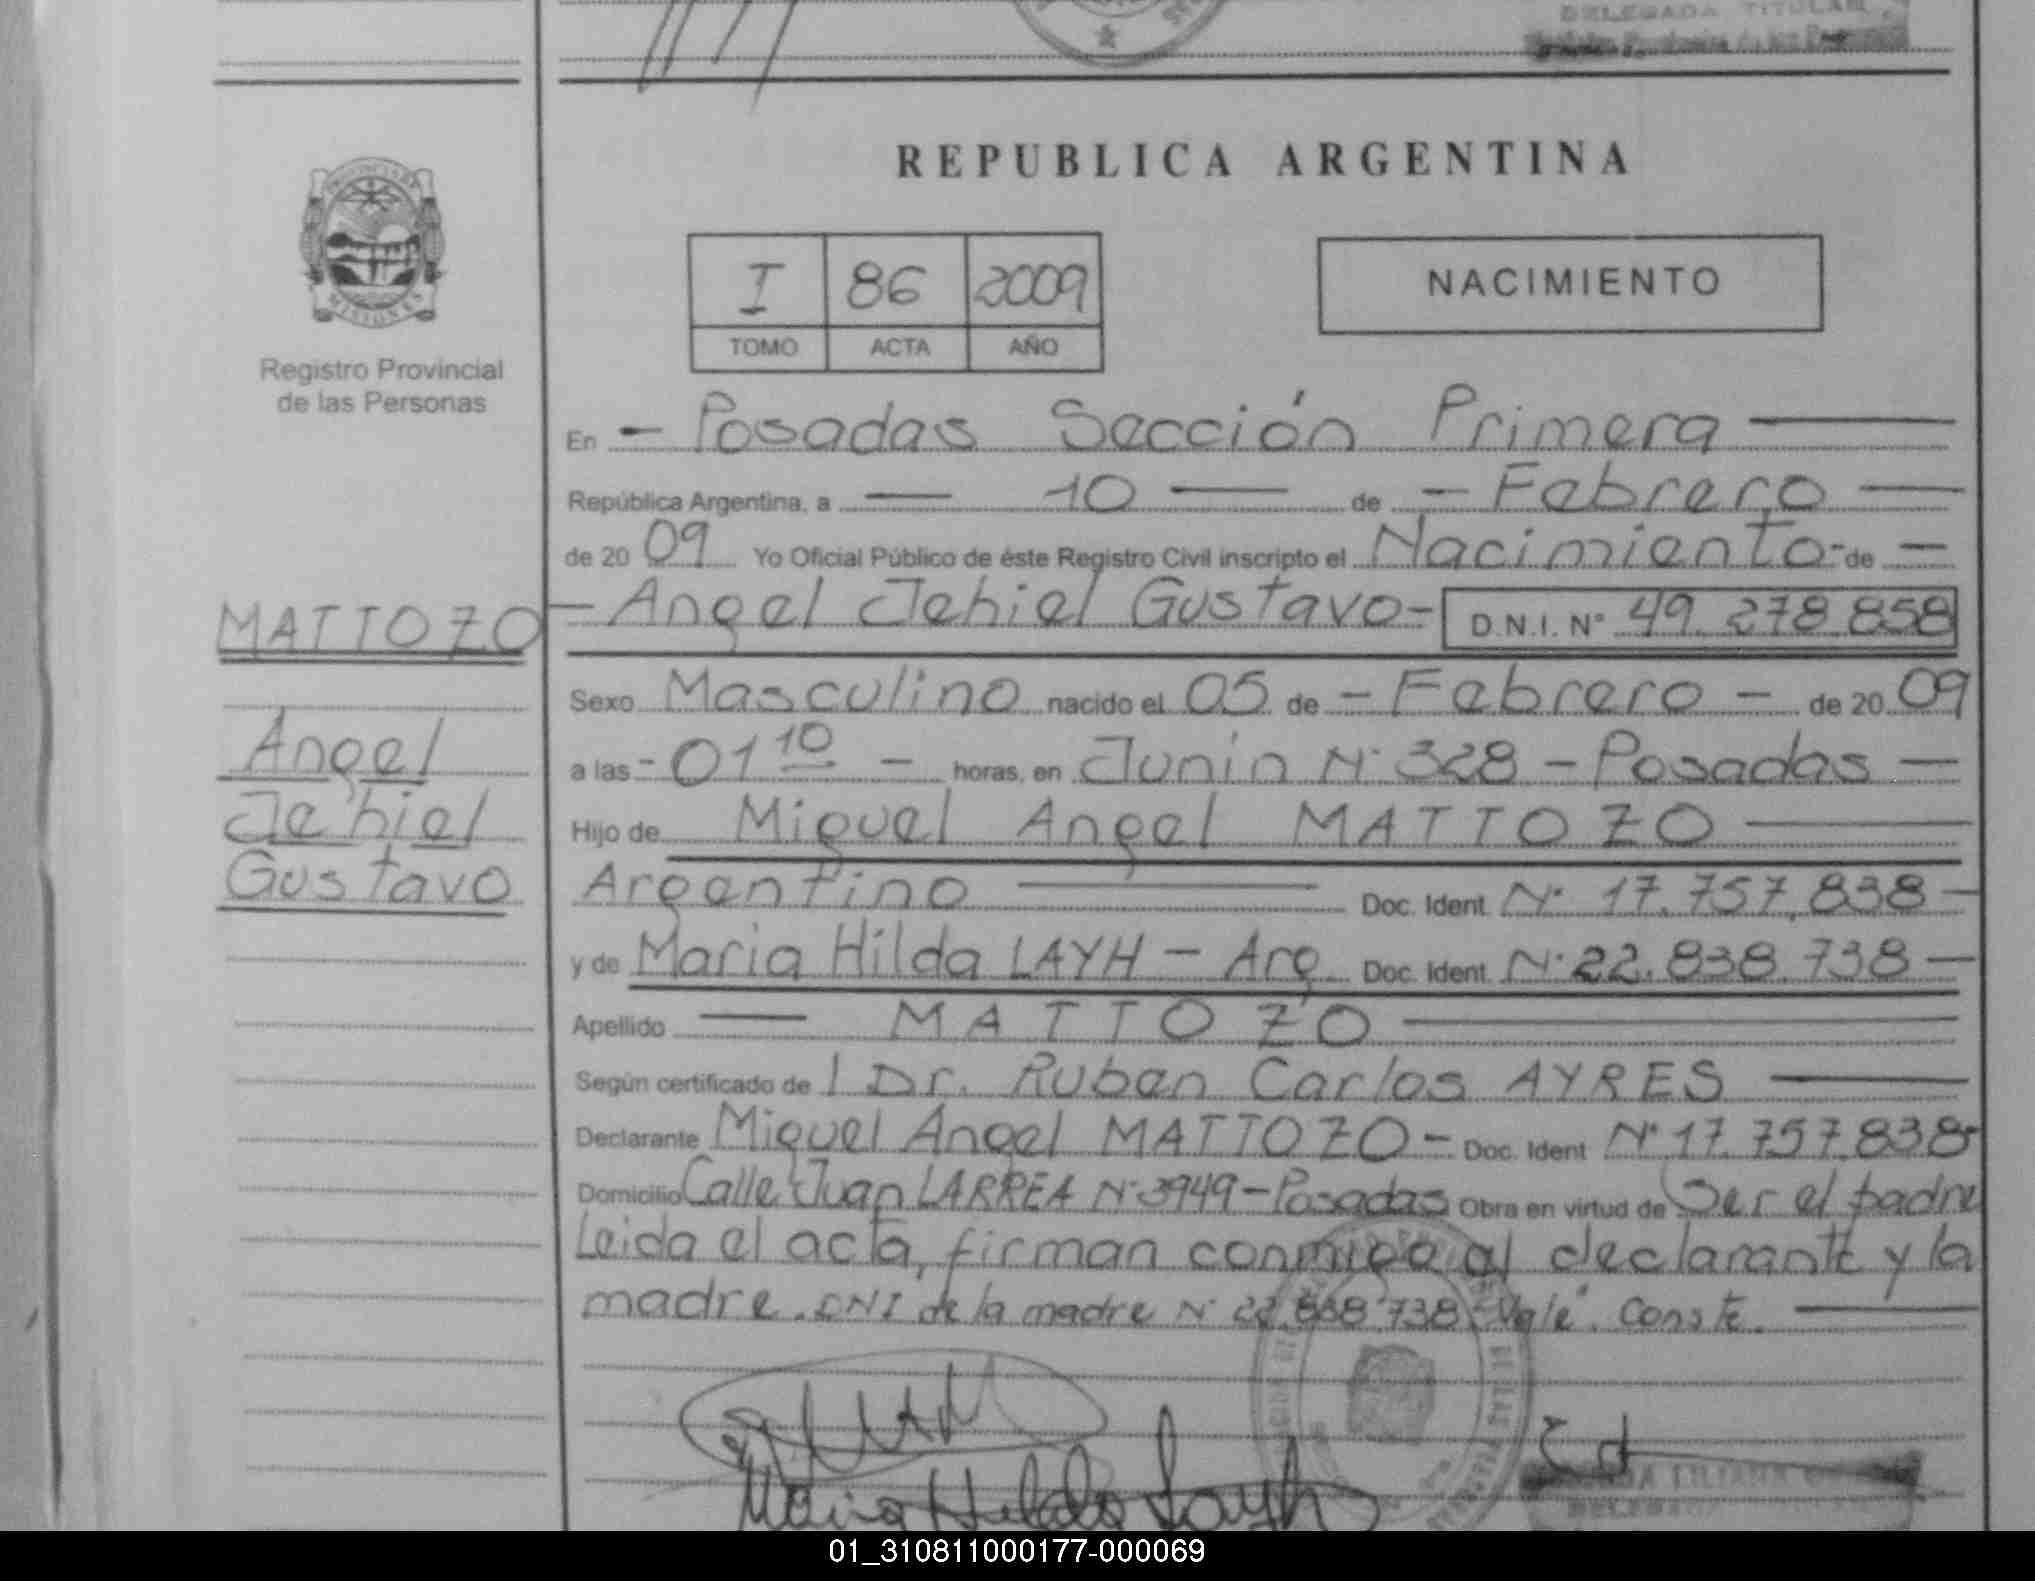 DELEGADA TITULAR
REPUBLICA ARGENTINA
I 86 2009
TOMO ACTA AÑO
NACIMIENTO
MISIONES
Registro Provincial
de las Personas
En - Posadas Sección Primera
República Argentina, a 10 de - Febrero
de 20 09 Yo Oficial Público de éste Registro Civil inscripto el Nacimiento - de -
MATTOZO
- Angel Jehiel Gustavo - D.N.I. Nº 49.278.858
Sexo Masculino nacido el 05 de - Febrero - de 20 09
Angel
Jehiel
Gustavo
a las - 01 10 - horas, en Junin Nº 328 - Posadas -
Hijo de Miguel Angel MATTOZO
Argentino Doc. Ident. Nº 17.757.838 -
y de Maria Hilda LAYH - Arg. Doc. Ident. Nº 22.838.738 -
Apellido MATTOZO
Según certificado de l Dr. Ruben Carlos AYRES
Declarante Miguel Angel MATTOZO - Doc. Ident Nº 17.757.838-
Domicilio Calle Juan LARREA Nº 3949 - Posadas Obra en virtud de Ser el padre
Leida el acta, firman conmigo el declarante y la
madre. DNI de la madre Nº 22.838.738 "Vale". Conste.
Maria Hilda Layh
LILIANA
01_310811000177-000069